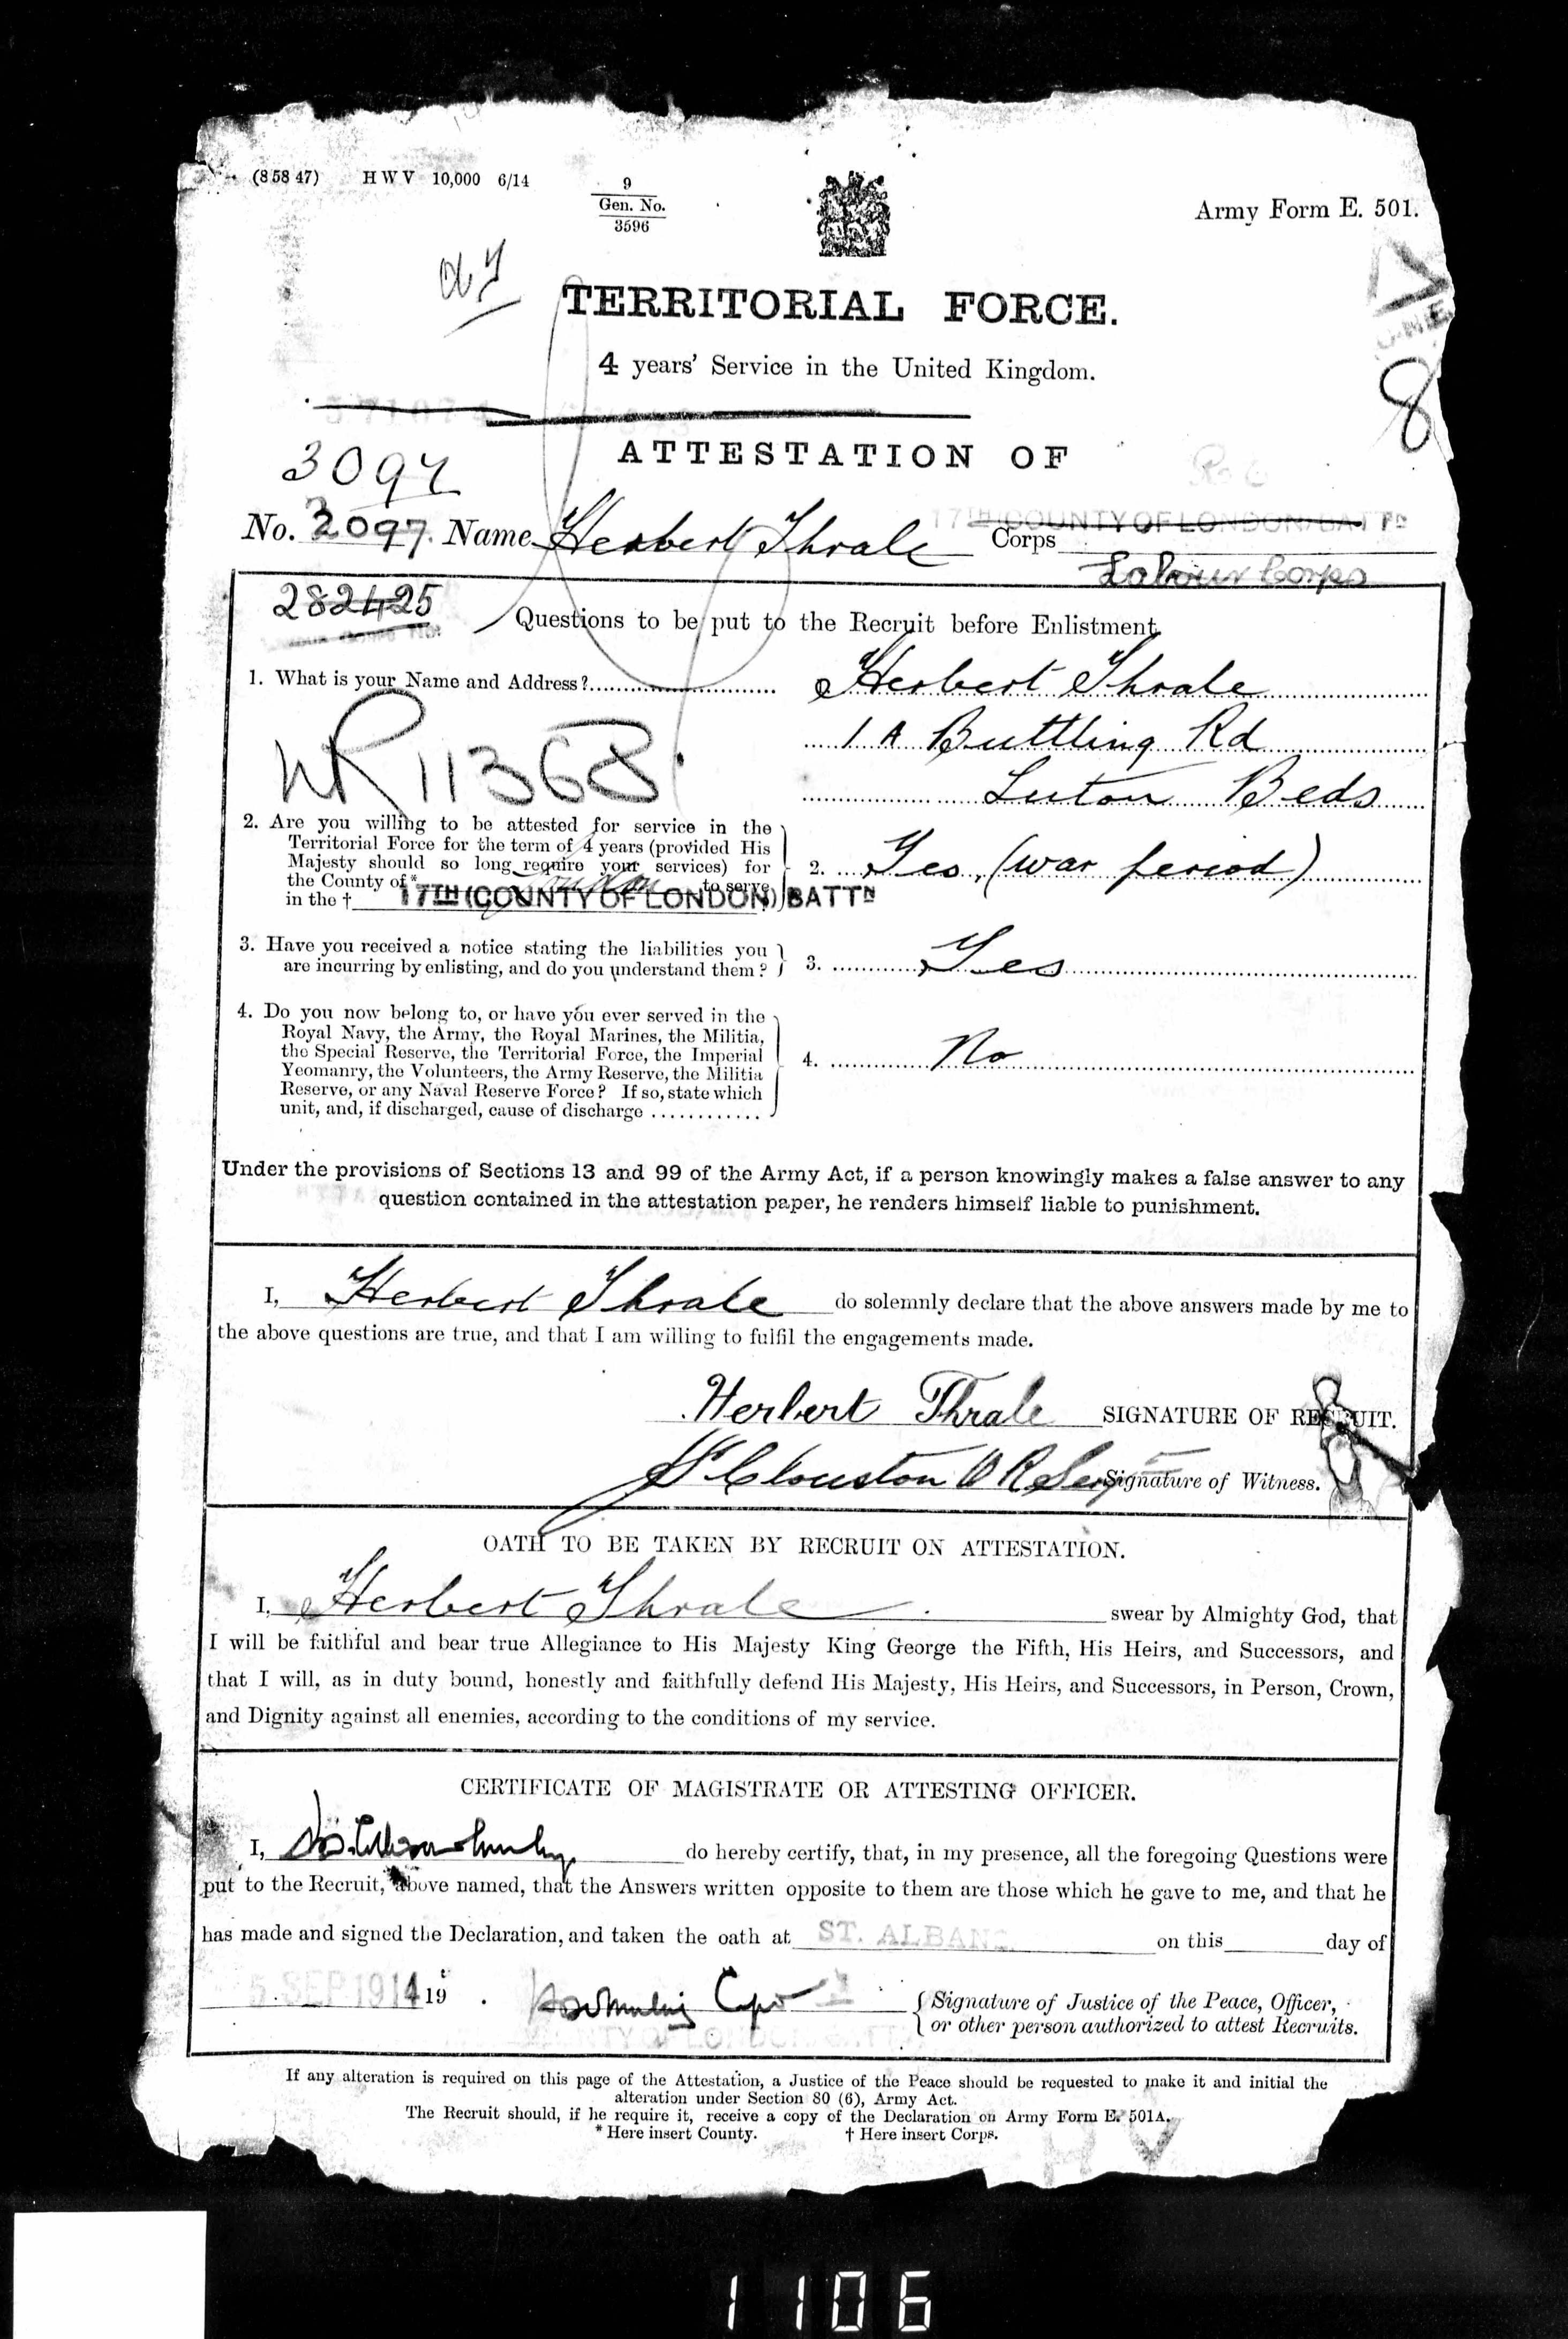 (8 58 47) H W V 10,000 6/14
9
Gen. No.
3596
Army Form E. 501.
TERRITORIAL FORCE.
4 years' Service in the United Kingdom.
8
ATTESTATION OF
3097
No. 3097. Name Herbert Thrale Corps 17TH (COUNTY OF LONDON) BATTN
Labour Corps
282425
Questions to be put to the Recruit before Enlistment.
1. What is your Name and Address? Herbert Thrale
1 A Buttling Rd
Luton Beds
WR 11368
2. Are you willing to be attested for service in the
Territorial Force for the term of 4 years (provided His
Majesty should so long require your services) for
the County of* London to serve
in the † 17TH (COUNTY OF LONDON) BATTN
2. Yes, (war period)
3. Have you received a notice stating the liabilities you
are incurring by enlisting, and do you understand them?
3. Yes
4. Do you now belong to, or have you ever served in the
Royal Navy, the Army, the Royal Marines, the Militia,
the Special Reserve, the Territorial Force, the Imperial
Yeomanry, the Volunteers, the Army Reserve, the Militia
Reserve, or any Naval Reserve Force? If so, state which
unit, and, if discharged, cause of discharge
4. No
Under the provisions of Sections 13 and 99 of the Army Act, if a person knowingly makes a false answer to any
question contained in the attestation paper, he renders himself liable to punishment.
I, Herbert Thrale do solemnly declare that the above answers made by me to
the above questions are true, and that I am willing to fulfil the engagements made.
Herbert Thrale SIGNATURE OF RECRUIT.
Clouston O R Sergt Signature of Witness.
OATH TO BE TAKEN BY RECRUIT ON ATTESTATION.
I, Herbert Thrale swear by Almighty God, that
I will be faithful and bear true Allegiance to His Majesty King George the Fifth, His Heirs, and Successors, and
that I will, as in duty bound, honestly and faithfully defend His Majesty, His Heirs, and Successors, in Person, Crown,
and Dignity against all enemies, according to the conditions of my service.
CERTIFICATE OF MAGISTRATE OR ATTESTING OFFICER.
I, do hereby certify, that, in my presence, all the foregoing Questions were
put to the Recruit, above named, that the Answers written opposite to them are those which he gave to me, and that he
has made and signed the Declaration, and taken the oath at ST. ALBANS on this day of
5 SEP 1914 19 .
Capt
Signature of Justice of the Peace, Officer,
or other person authorized to attest Recruits.
If any alteration is required on this page of the Attestation, a Justice of the Peace should be requested to make it and initial the
alteration under Section 80 (6), Army Act.
The Recruit should, if he require it, receive a copy of the Declaration on Army Form E. 501A.
* Here insert County. † Here insert Corps.
1106